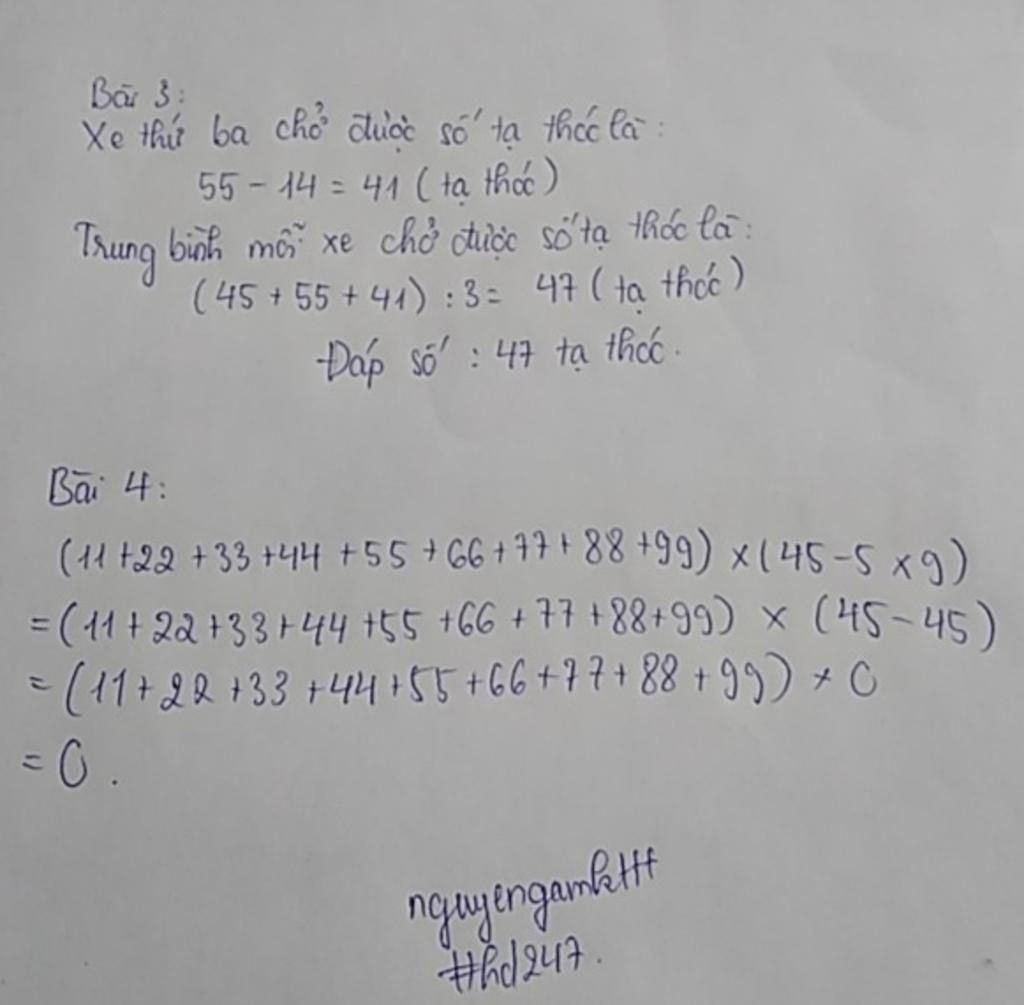 Bài 3:
Xe thứ ba chở được số tạ thóc là:
55 - 14 = 41 (tạ thóc)
Trung bình mỗi xe chở được số tạ thóc là:
(45 + 55 + 41) : 3 = 47 (tạ thóc)
Đáp số : 47 tạ thóc.
Bài 4:
(11+22+33+44+55+66+77+88+99) x (45-5 x 9)
= (11+22+33+44+55+66+77+88+99) x (45-45)
= (11+22+33+44+55+66+77+88+99) x 0
= 0.
#hd247.